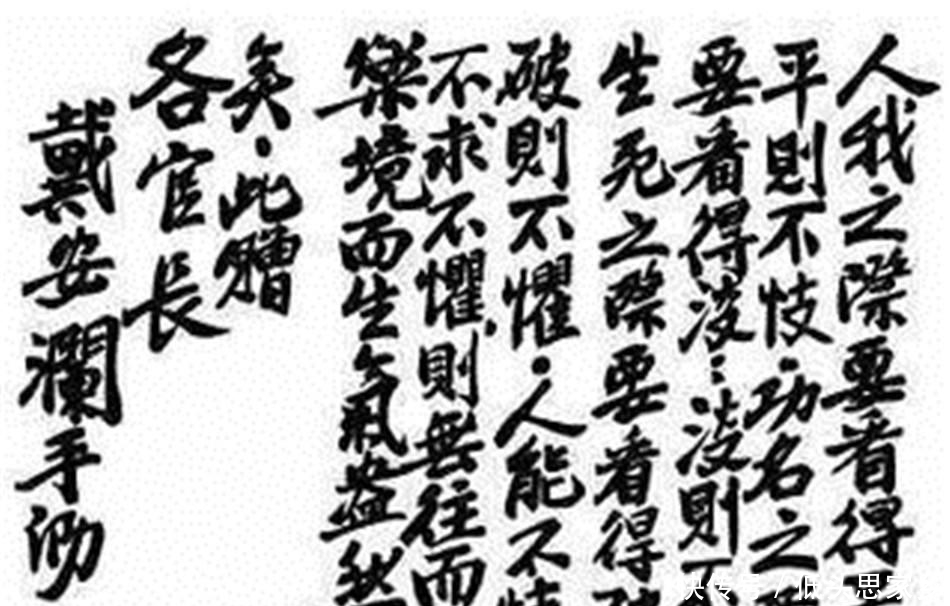 人我之際要看得
平則不忮.功名之
要看得淡:淡則
生死之際要看得
破則不懼.人能不
不求不懼,則無往而
樂境而生氣盎然
矣.此贈
各官長
戴安瀾手泐